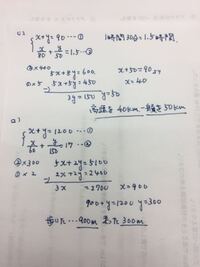 (1)
x+y=90 …①
x/80 + y/50 =1.5 …②
1時間30分=1.5時間
②×400 5x+8y=600
①×5 5x+5y=450
3y=150 y=50
x+50=90
x=40
高速を40km 一般を50km
(2)
x+y=1200 …①
x/60 + y/150 =17 …②
②×300 5x+2y=5100
①×2 2x+2y=2400
3x =2700 x=900
900+y=1200 y=300
歩いた…900m 走った300m